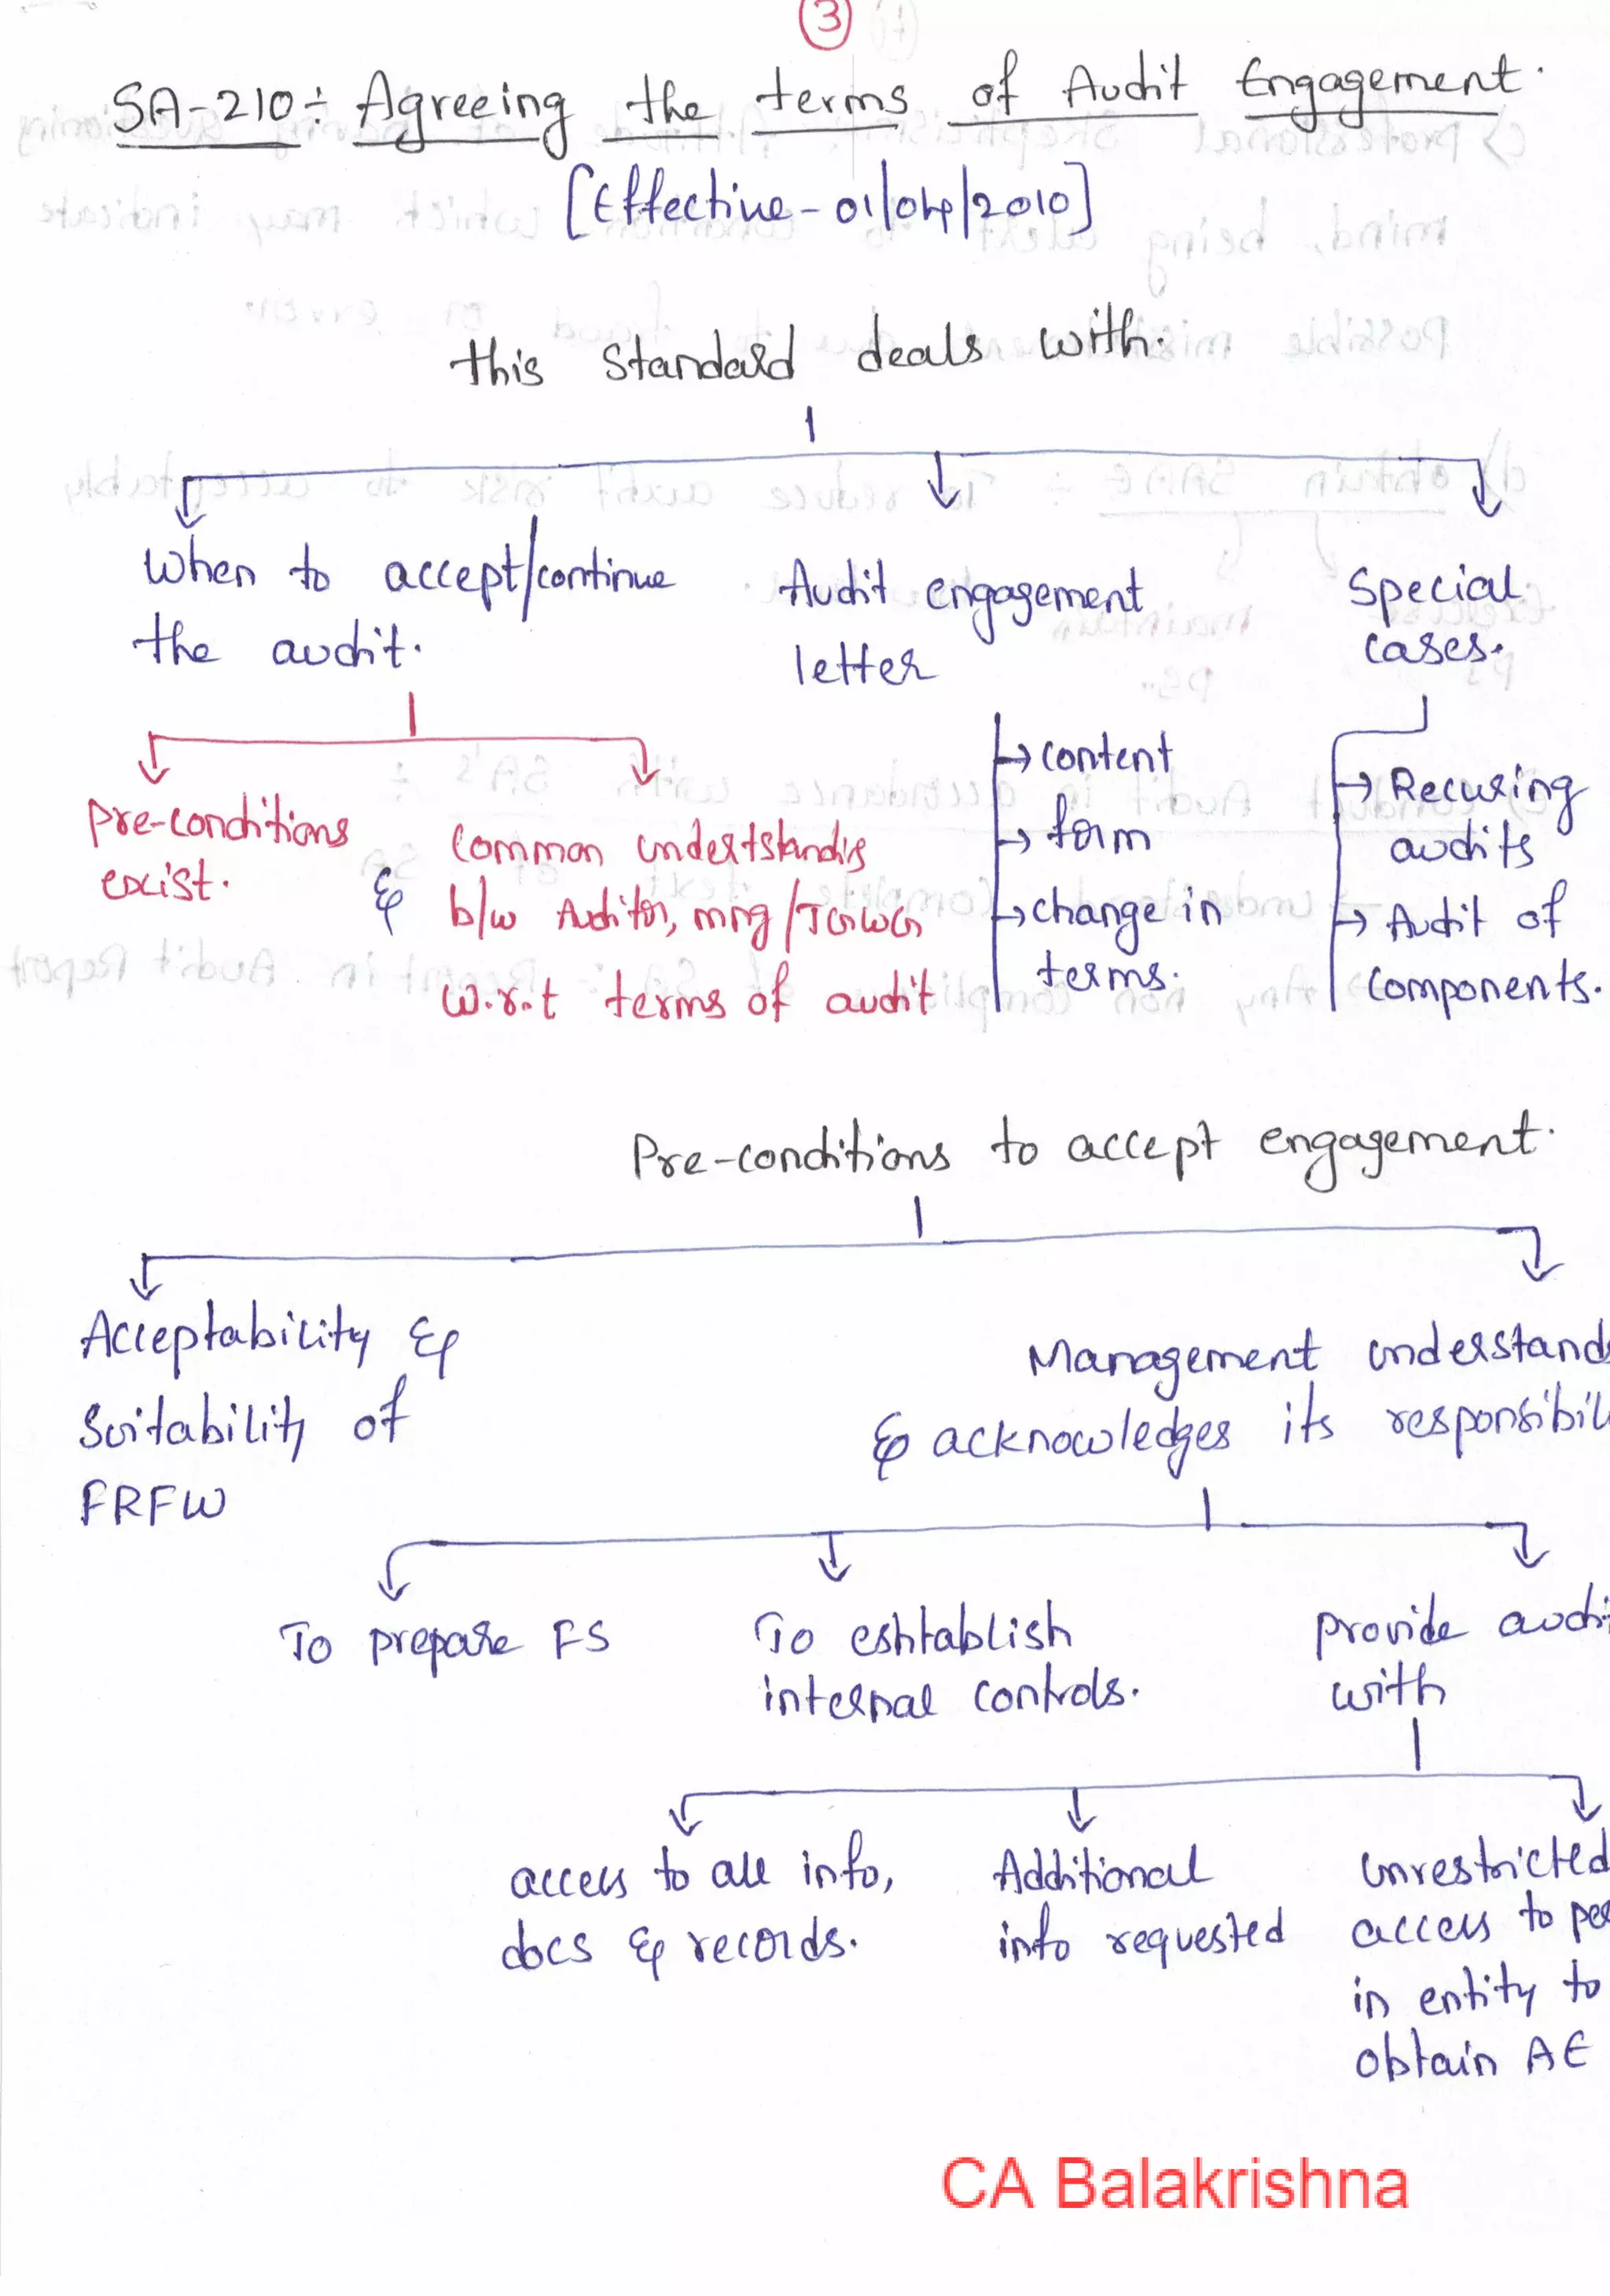 3
SA-210÷ Agreeing the terms of Audit Engagement.
[Effective - 01/04/2010]
this standard deals with.
When to accept/continue
the audit.
Audit engagement
letter
Special
cases.
pre-conditions
exist.
&
common underststanding
b/w Auditor, mng/TCWG
w.r.t terms of audit
→ content
→ form
→ change in
terms.
→ Recuring
audits
→ Audit of
components.
Pre-conditions to accept engagement.
Acceptability &
Suitability of
FRFW
Management understands
& acknowledges its responsibil
To prepare FS
To eshtablish
internal controls.
provide audi
with
access to all info,
docs & records.
Additional
info requested
unrestricted
access to pe
in entity to
obtain AE
CA Balakrishna